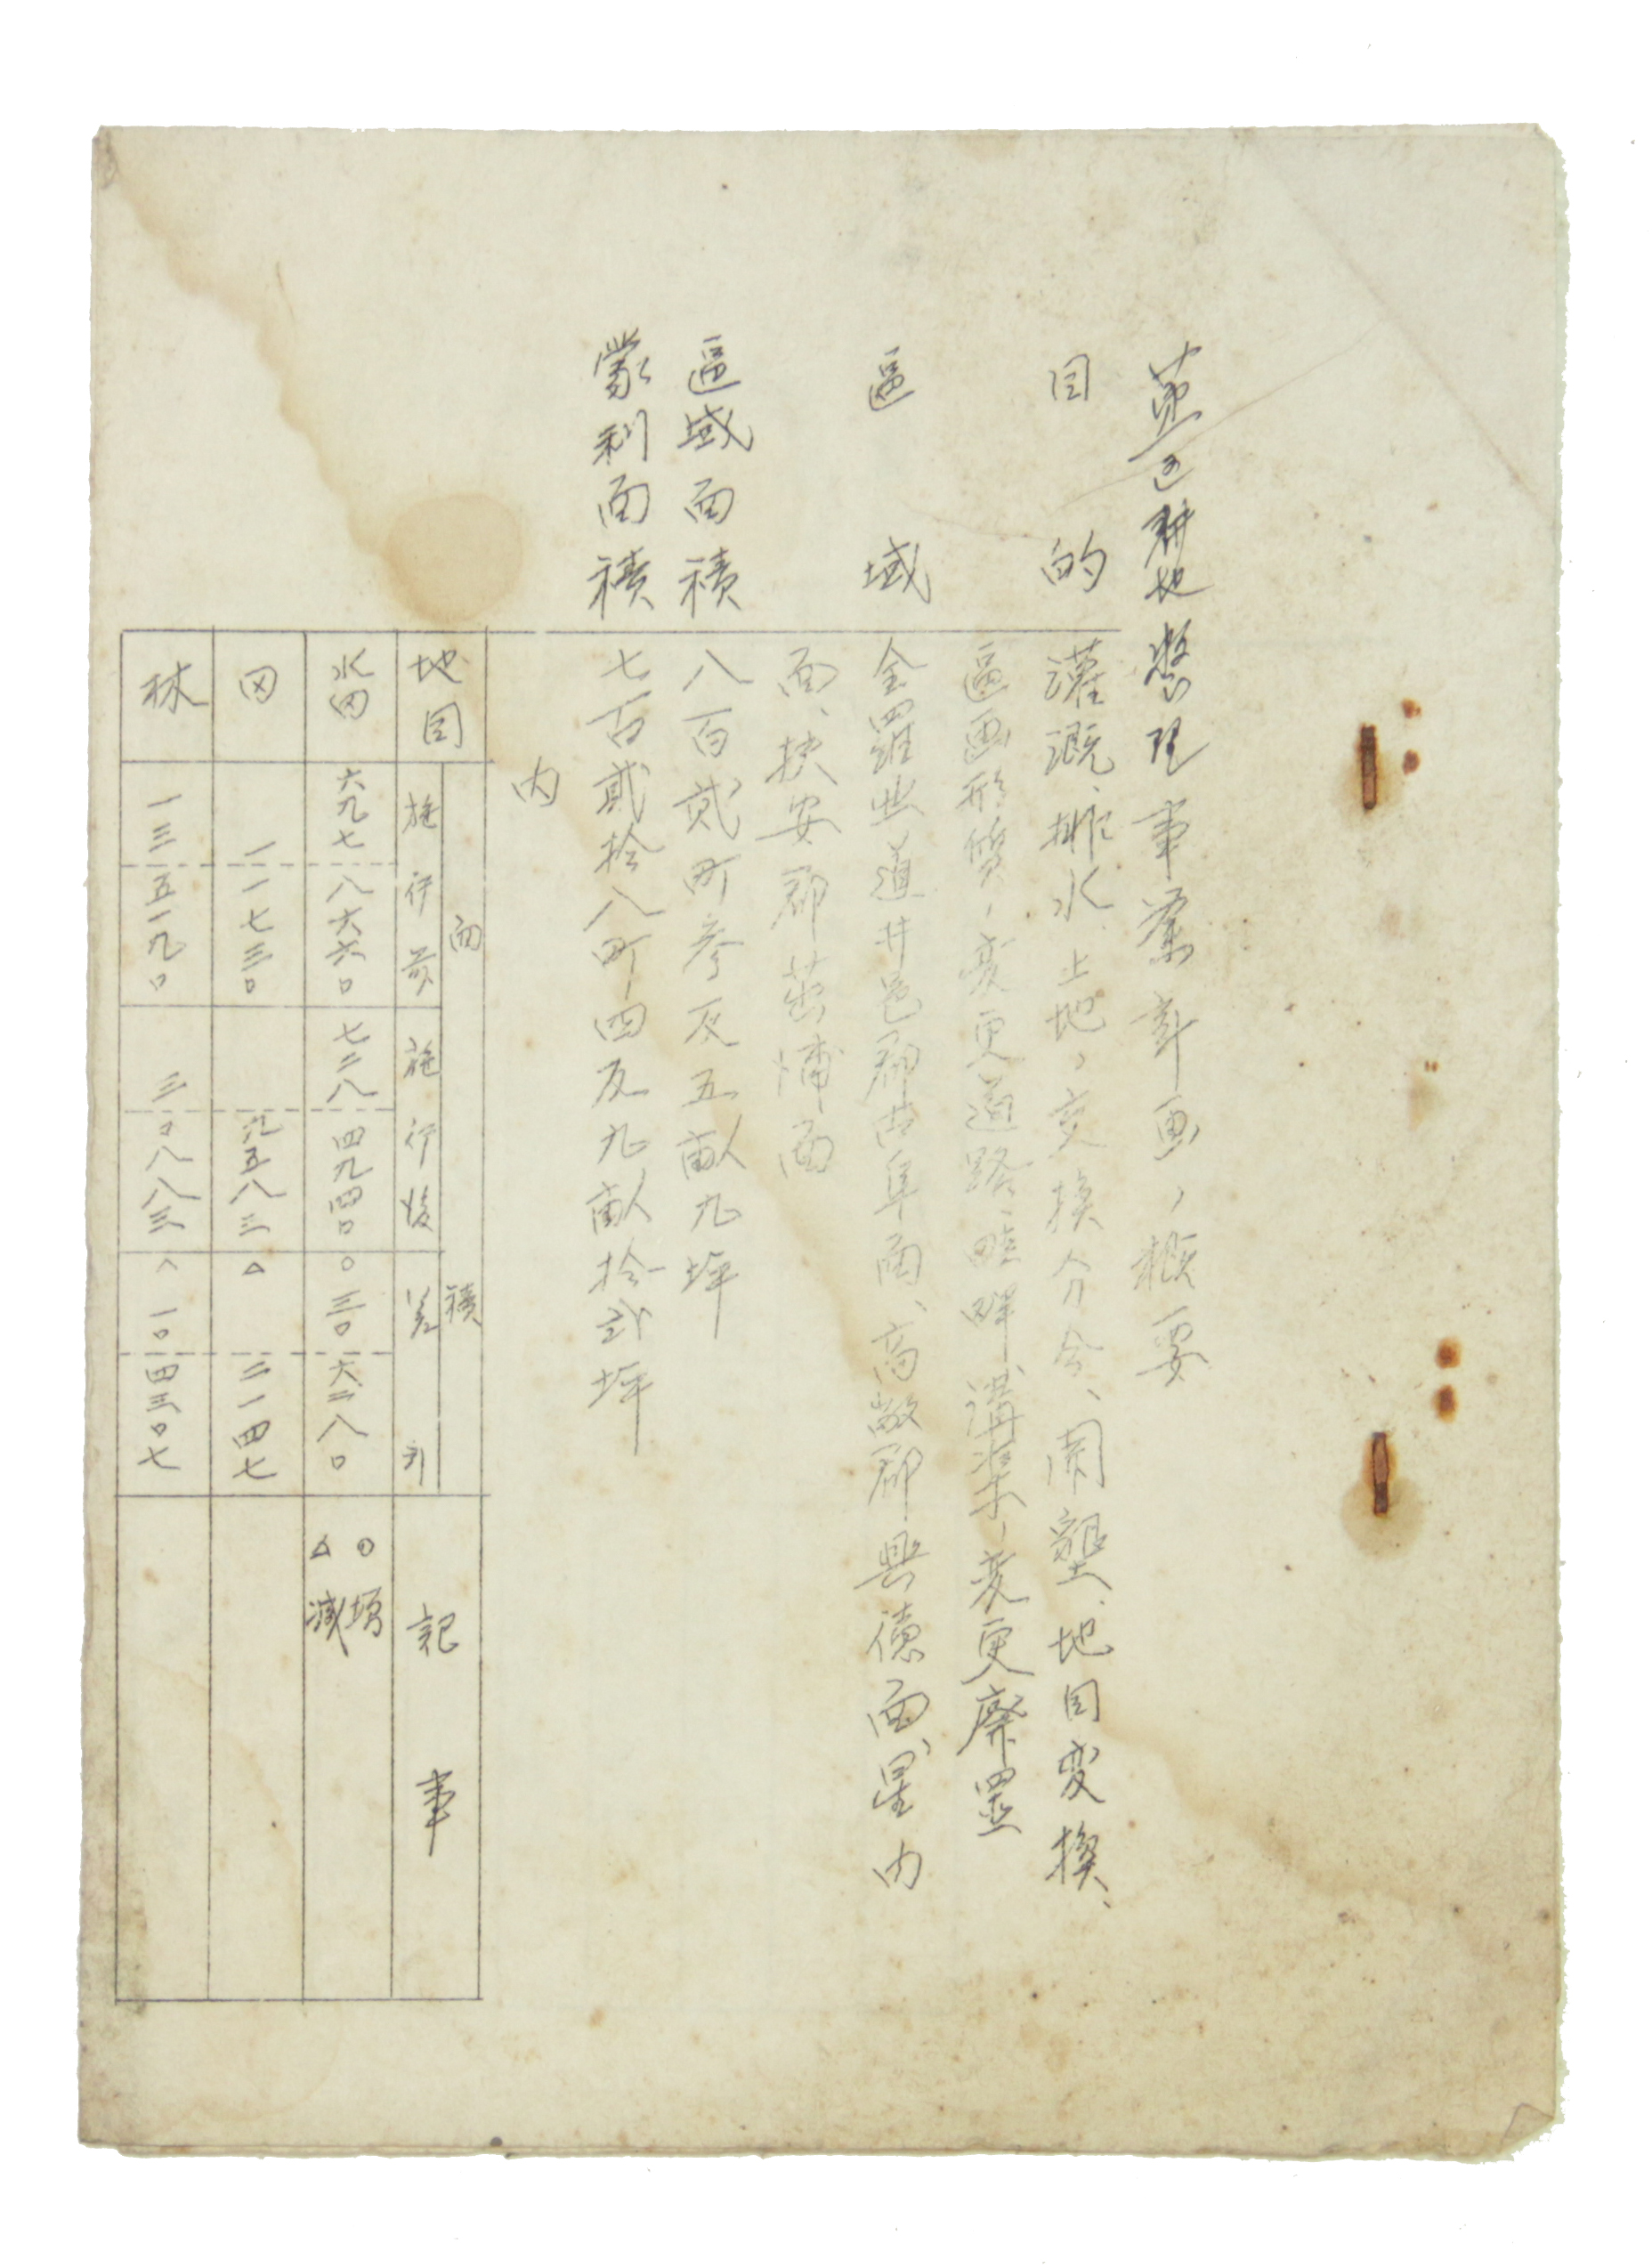 耕地整理事業計画ノ概要
目的
灌漑、排水、土地ノ交換分合、開墾、地目変換、
區画形質ノ変更道路、畦畔、溝渠ノ変更廢置
區域
全羅北道井邑郡古阜面、高敞郡興德面、星内
面、扶安郡茁浦面
區域面積
八百貮町参反五畝九坪
蒙利面積
七百貮拾八町四反九畝拾弐坪
内
地目 面積 記事
施行前 施行後 差引
水田 六九七 八六六〇 七二八 四九四〇 〇三〇 六二八〇 〇増 △減
田 一 一七三〇 九五八三 △ 二一四七
林 一三 五一九〇 三 〇八八三 △一〇 四三〇七